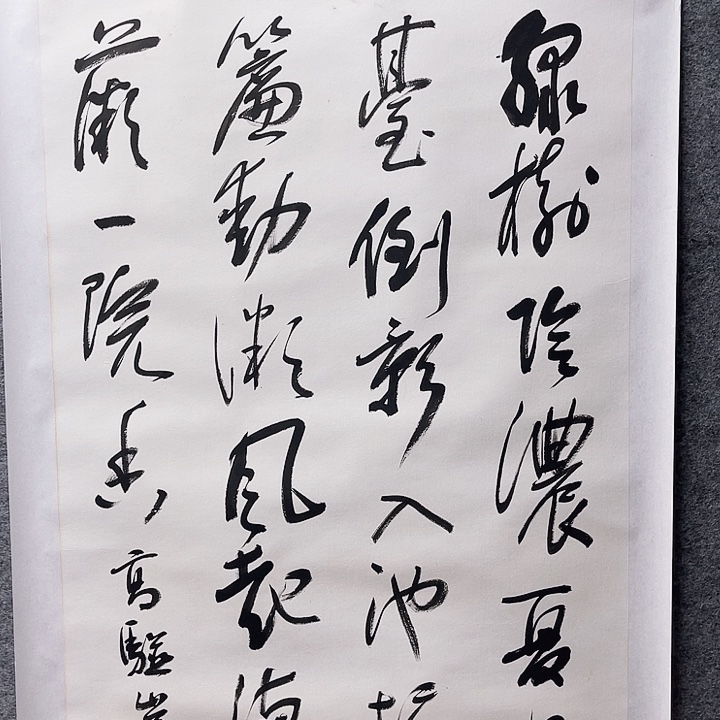 綠樹陰濃夏
臺倒影入池
簾動微風起滿
薇一院香 高駢山